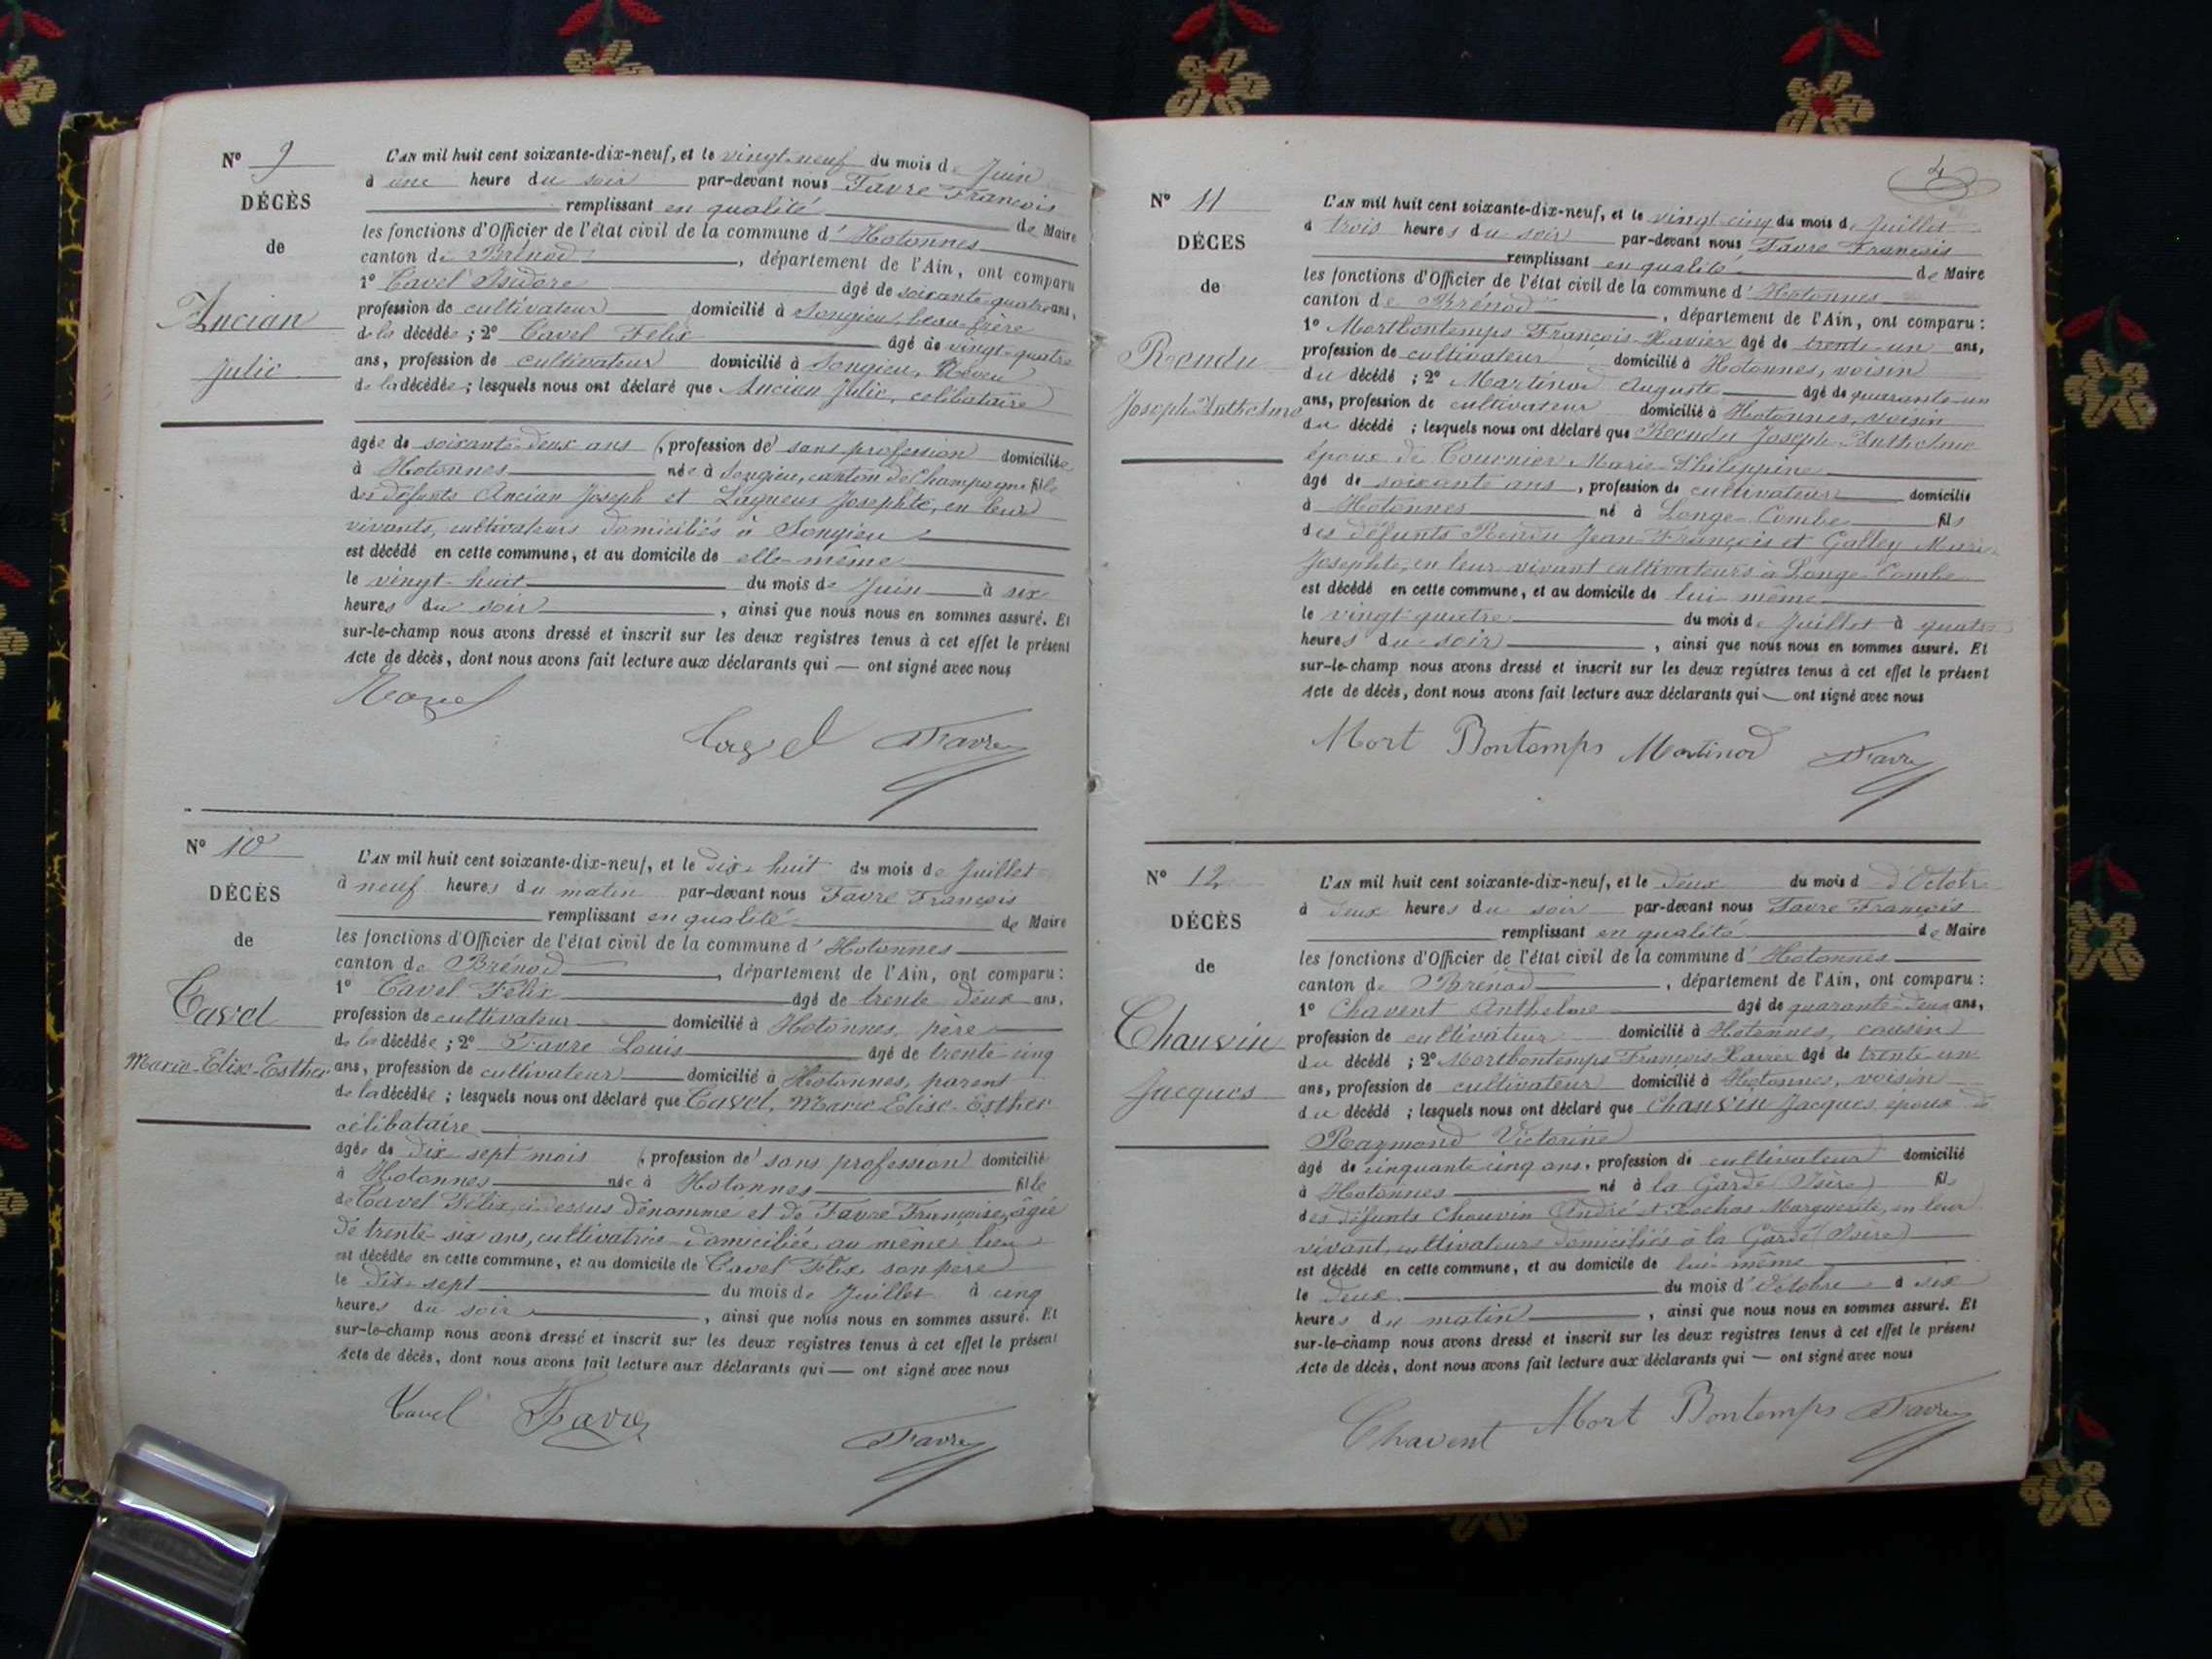 N° 9
DÉCÈS
de
Ancian
Julie
L'AN mil huit cent soixante-dix-neuf, et le vingt-neuf du mois de Juin
à une heure du soir par-devant nous Favre François
remplissant en qualité de Maire
les fonctions d'Officier de l'état civil de la commune d'Hotonnes
canton de Brénod, département de l'Ain, ont comparu
1° Cavel Isidore âgé de soixante-quatre ans,
profession de cultivateur domicilié à Songieu, beau-frère
de la décédée ; 2° Cavel Felix âgé de vingt-quatre
ans, profession de cultivateur domicilié à Songieu, Neveu
de la décédée ; lesquels nous ont déclaré que Ancian Julie, celibataire
âgée de soixante-deux ans (profession de) sans profession domiciliée
à Hotonnes née à Songieu, canton de Champagne fille
des défunts Ancian Joseph et Lagneux Josephte, en leur
vivants, cultivateurs domiciliés à Songieu
est décédé en cette commune, et au domicile de elle-même
le vingt-huit du mois de Juin à six
heures du soir, ainsi que nous nous en sommes assuré. Et
sur-le-champ nous avons dressé et inscrit sur les deux registres tenus à cet effet le présent
Acte de décès, dont nous avons fait lecture aux déclarants qui — ont signé avec nous
Cavel Favre
N° 10
DÉCÈS
de
Cavel
Marie-Elise-Esther
L'AN mil huit cent soixante-dix-neuf, et le dix-huit du mois de Juillet
à neuf heures du matin par-devant nous Favre François
remplissant en qualité de Maire
les fonctions d'Officier de l'état civil de la commune d'Hotonnes
canton de Brénod, département de l'Ain, ont comparu :
1° Cavel Félix âgé de trente-deux ans,
profession de cultivateur domicilié à Hotonnes, père
de la décédée ; 2° Favre Louis âgé de trente-cinq
ans, profession de cultivateur domicilié à Hotonnes, parent
de la décédée ; lesquels nous ont déclaré que Cavel, Marie-Elise-Esther
célibataire
âgée de dix-sept mois (profession de) sans profession domicilié
à Hotonnes née à Hotonnes fille
de Cavel Félix, ci-dessus dénommé et de Favre Françoise, âgée
de trente-six ans, cultivatrice domiciliée au même lieu
est décédée en cette commune, et au domicile de Cavel Félix son père
le dix-sept du mois de Juillet à cinq
heures du soir, ainsi que nous nous en sommes assuré. Et
sur-le-champ nous avons dressé et inscrit sur les deux registres tenus à cet effet le présent
Acte de décès, dont nous avons fait lecture aux déclarants qui — ont signé avec nous
Cavel Favre
Favre
N° 11
DÉCÈS
de
Rendu
Joseph-Anthelme
L'AN mil huit cent soixante-dix-neuf, et le vingt-cinq du mois de Juillet
à trois heures du soir par-devant nous Favre François
remplissant en qualité de Maire
les fonctions d'Officier de l'état civil de la commune d'Hotonnes
canton de Brénod, département de l'Ain, ont comparu :
1° Mortbontemps François-Xavier âgé de trente-un ans,
profession de cultivateur domicilié à Hotonnes, voisin
du décédé ; 2° Martinod Auguste âgé de quarante-un
ans, profession de cultivateur domicilié à Hotonnes, voisin
du décédé ; lesquels nous ont déclaré que Rendu Joseph-Anthelme
époux de Tournier Marie-Philippine
âgé de soixante ans, profession de cultivateur domicilié
à Hotonnes né à Longe-Combe fils
des défunts Rendu Jean-François et Galley Marie
Josephte, en leur vivant cultivateurs à Longe-Combe
est décédé en cette commune, et au domicile de lui-même
le vingt-quatre du mois de Juillet à quatre
heures du soir, ainsi que nous nous en sommes assuré. Et
sur-le-champ nous avons dressé et inscrit sur les deux registres tenus à cet effet le présent
Acte de décès, dont nous avons fait lecture aux déclarants qui — ont signé avec nous
Mort Bontemps Martinod Favre
N° 12
DÉCÈS
de
Chauvin
Jacques
L'AN mil huit cent soixante-dix-neuf, et le deux du mois d d'Octobre
à deux heures du soir par-devant nous Favre François
remplissant en qualité de Maire
les fonctions d'Officier de l'état civil de la commune d'Hotonnes
canton de Brénod, département de l'Ain, ont comparu :
1° Chavent Anthelme âgé de quarante-deux ans,
profession de cultivateur domicilié à Hotonnes, cousin
du décédé ; 2° Mortbontemps François-Xavier âgé de trente-un
ans, profession de cultivateur domicilié à Hotonnes, voisin
du décédé ; lesquels nous ont déclaré que Chauvin Jacques, époux de
Raymond Victorine
âgé de cinquante-cinq ans, profession de cultivateur domicilié
à Hotonnes né à la Garde (Isère) fils
des défunts Chauvin André et Rochas Marguerite, en leur
vivant, cultivateurs domiciliés à la Garde (Isère)
est décédé en cette commune, et au domicile de lui-même
le deux du mois d'Octobre à six
heures du matin, ainsi que nous nous en sommes assuré. Et
sur-le-champ nous avons dressé et inscrit sur les deux registres tenus à cet effet le présent
Acte de décès, dont nous avons fait lecture aux déclarants qui — ont signé avec nous
Chavent Mort Bontemps Favre